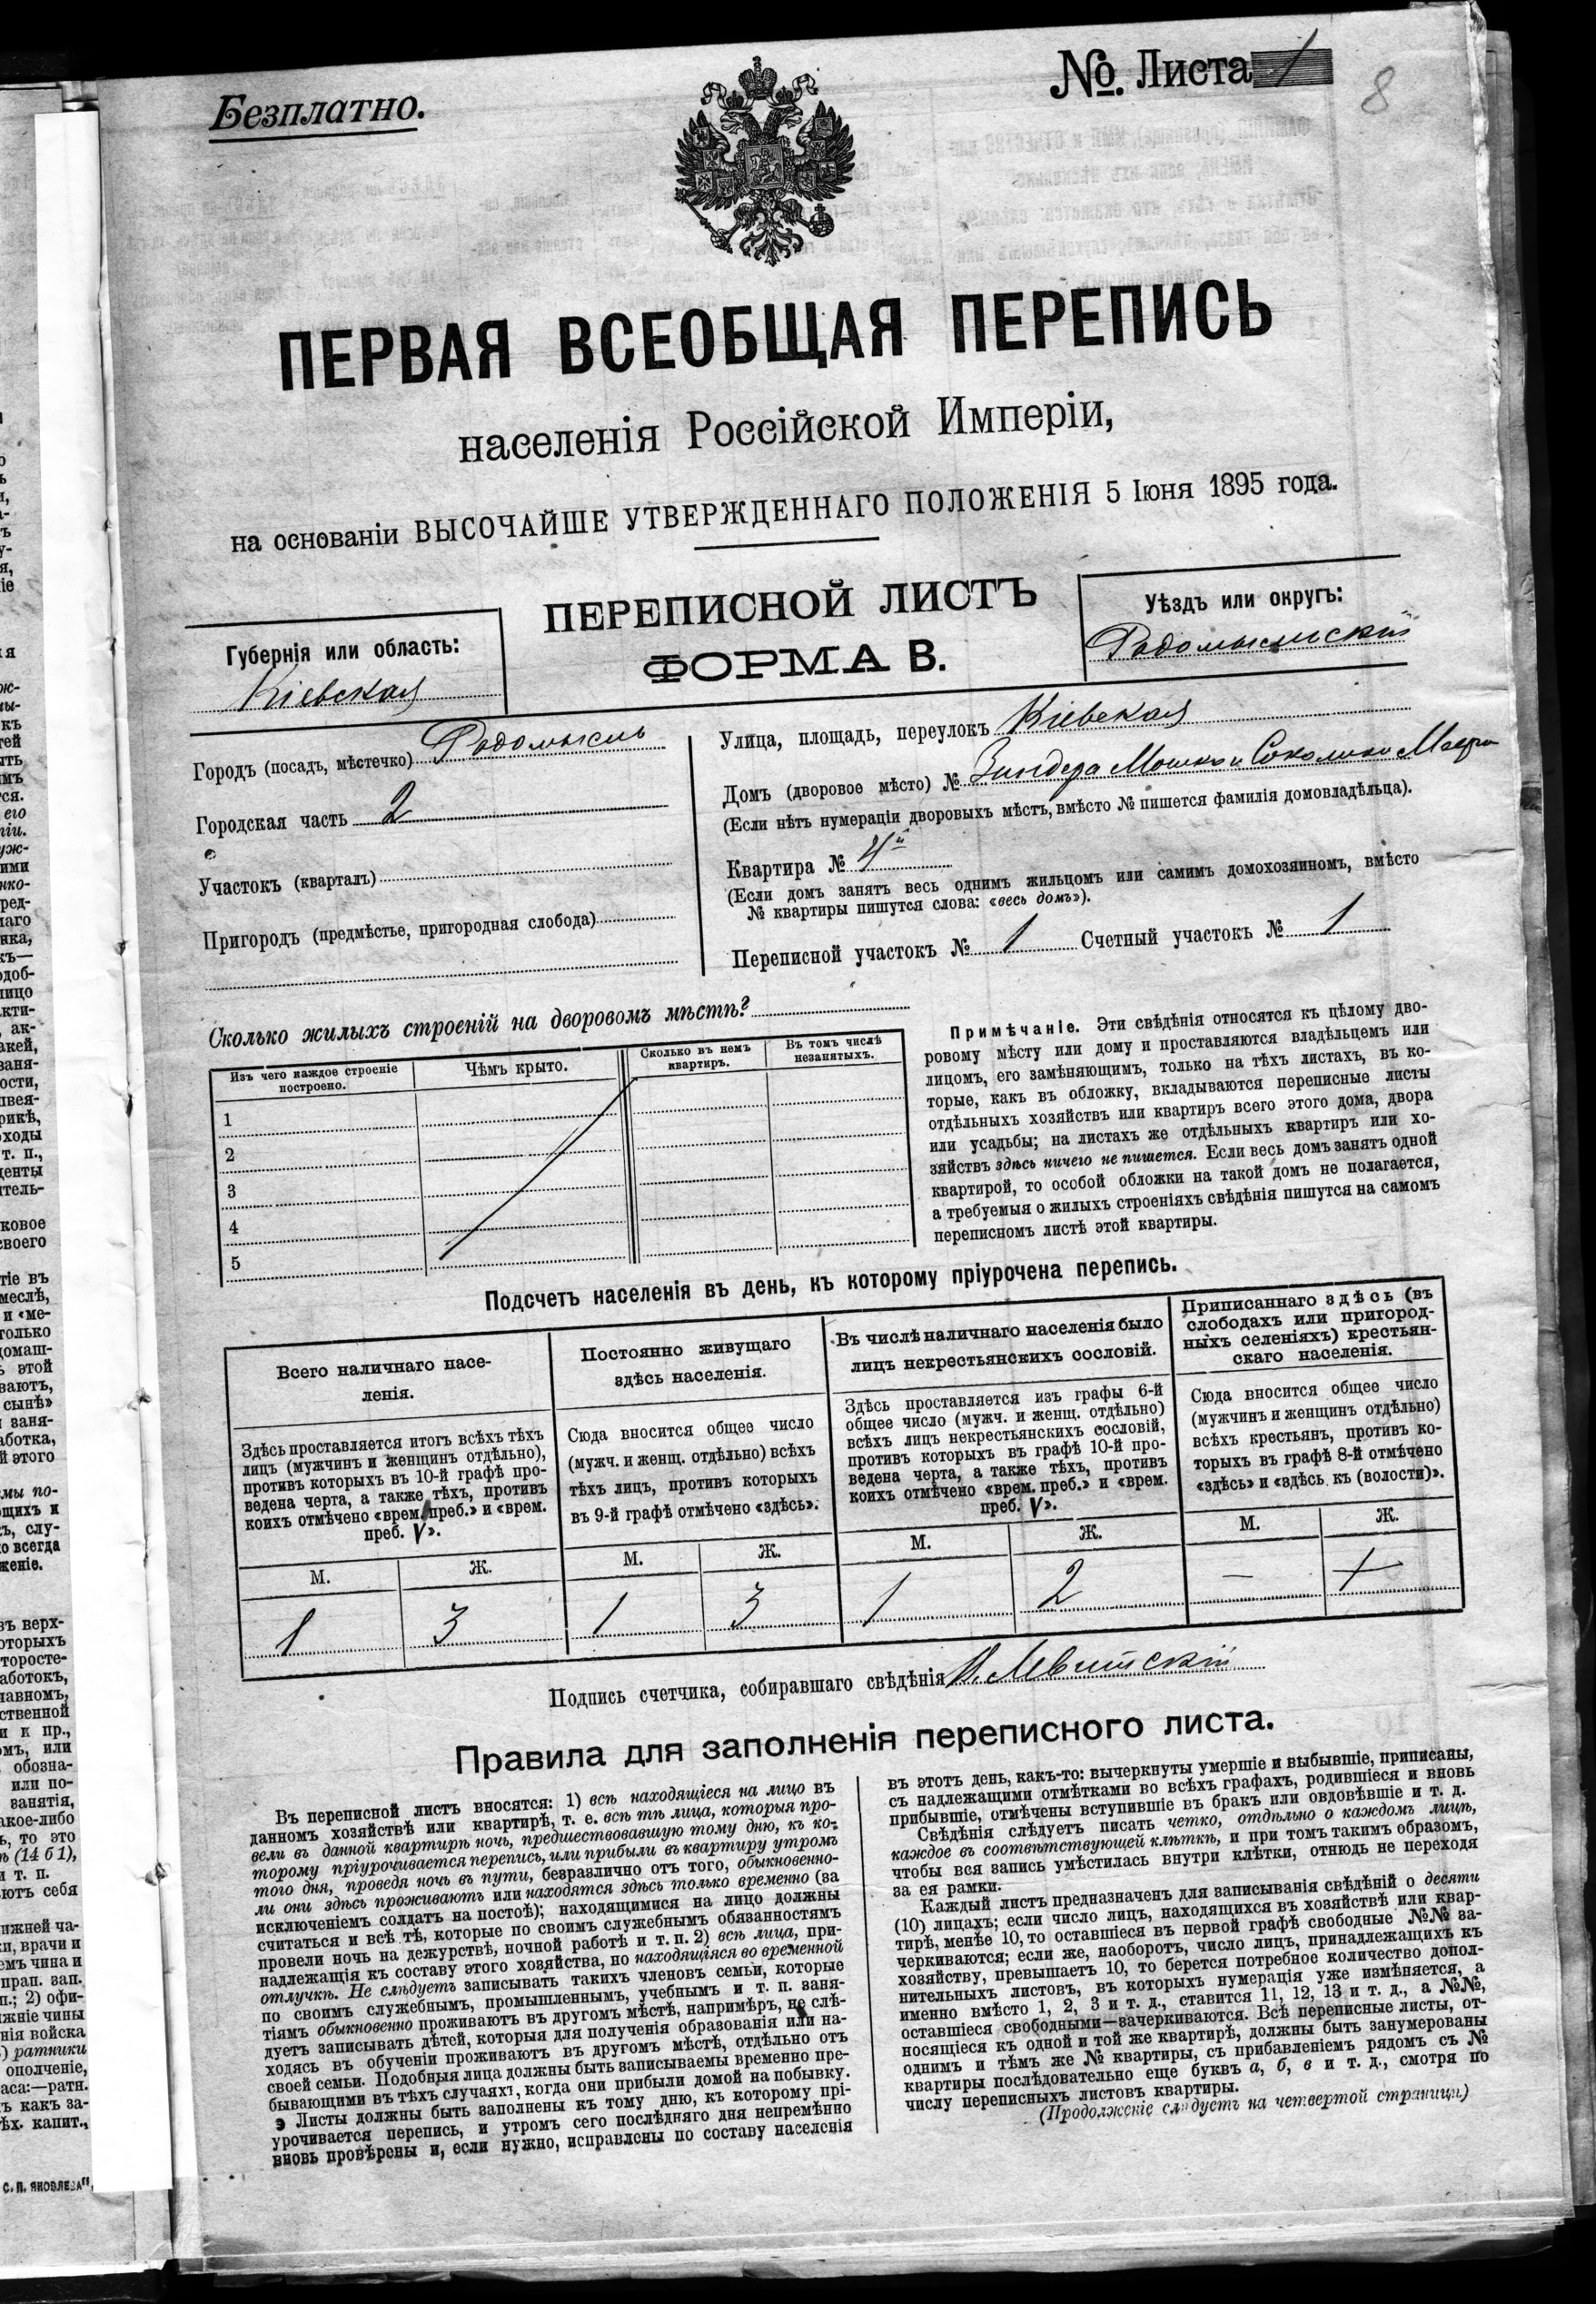 Безплатно.
№. Листа 1
8
ПЕРВАЯ ВСЕОБЩАЯ ПЕРЕПИСЬ
населенія Россійской Имперіи,
на основаніи ВЫСОЧАЙШЕ УТВЕРЖДЕННАГО ПОЛОЖЕНІЯ 5 Іюня 1895 года.
ПЕРЕПИСНОЙ ЛИСТЪ
ФОРМА В.
Губернія или область:
Кіевская
Уѣздъ или округъ:
Радомысльскій
Городъ (посадъ, мѣстечко) Радомысль
Городская часть 2
Участокъ (кварталъ)
Пригородъ (предмѣстье, пригородная слобода)
Улица, площадь, переулокъ Кіевская
Домъ (дворовое мѣсто) № Зиндера Мошко и
(Если нѣтъ нумераціи дворовыхъ мѣстъ, вмѣсто № пишется фамилія домовладѣльца).
Квартира № 4й
(Если домъ занятъ весь однимъ жильцомъ или самимъ домохозяиномъ, вмѣсто
№ квартиры пишутся слова: «весь домъ»).
Переписной участокъ № 1 Счетный участокъ № 1
Сколько жилыхъ строеній на дворовомъ мѣстѣ?
Изъ чего каждое строеніе
построено.
Чѣмъ крыто.
Сколько въ немъ
квартиръ.
Въ томъ числѣ
незанятыхъ.
1
2
3
4
5
Примѣчаніе. Эти свѣдѣнія относятся къ цѣлому дво-
ровому мѣсту или дому и проставляются владѣльцемъ или
лицомъ, его замѣняющимъ, только на тѣхъ листахъ, въ ко-
торые, какъ въ обложку, вкладываются переписные листы
отдѣльныхъ хозяйствъ или квартиръ всего этого дома, двора
или усадьбы; на листахъ же отдѣльныхъ квартиръ или хо-
зяйствъ здѣсь ничего не пишется. Если весь домъ занятъ одной
квартирой, то особой обложки на такой домъ не полагается,
а требуемыя о жилыхъ строеніяхъ свѣдѣнія пишутся на самомъ
переписномъ листѣ этой квартиры.
Подсчетъ населенія въ день, къ которому пріурочена перепись.
Всего наличнаго насе-
ленія.
Здѣсь проставляется итогъ всѣхъ тѣхъ
лицъ (мужчинъ и женщинъ отдѣльно),
противъ которыхъ въ 10-й графѣ про-
ведена черта, а также тѣхъ, противъ
коихъ отмѣчено «врем. преб.» и «врем.
преб. V».
М.
Ж.
1
3
Постоянно живущаго
здѣсь населенія.
Сюда вносится общее число
(мужч. и женщ. отдѣльно) всѣхъ
тѣхъ лицъ, противъ которыхъ
въ 9-й графѣ отмѣчено «здѣсь».
М.
Ж.
1
3
Въ числѣ наличнаго населенія было
лицъ некрестьянскихъ сословій.
Здѣсь проставляется изъ графы 6-й
общее число (мужч. и женщ. отдѣльно)
всѣхъ лицъ некрестьянскихъ сословій,
противъ которыхъ въ графѣ 10-й про-
ведена черта, а также тѣхъ, противъ
коихъ отмѣчено «врем. преб.» и «врем.
преб. V».
М.
Ж.
1
2
Приписаннаго здѣсь (въ
слободахъ или пригород-
ныхъ селеніяхъ) крестьян-
скаго населенія.
Сюда вносится общее число
(мужчинъ и женщинъ отдѣльно)
всѣхъ крестьянъ, противъ ко-
торыхъ въ графѣ 8-й отмѣчено
«здѣсь» и «здѣсь къ (волости)».
М.
Ж.
—
Подпись счетчика, собиравшаго свѣдѣнія Левитскій
Правила для заполненія переписного листа.
Въ переписной листъ вносятся: 1) всѣ находящіеся на лицо въ
данномъ хозяйствѣ или квартирѣ, т. е. всѣ тѣ лица, которыя про-
вели въ данной квартирѣ ночь, предшествовавшую тому дню, къ ко-
торому пріурочивается перепись, или прибыли въ квартиру утромъ
того дня, проведя ночь въ пути, безразлично отъ того, обыкновенно-
ли они здѣсь проживаютъ или находятся здѣсь только временно (за
исключеніемъ солдатъ на постоѣ); находящимися на лицо должны
считаться и всѣ тѣ, которые по своимъ служебнымъ обязанностямъ
провели ночь на дежурствѣ, ночной работѣ и т. п. 2) всѣ лица, при-
надлежащія къ составу этого хозяйства, но находящіяся во временной
отлучкѣ. Не слѣдуетъ записывать такихъ членовъ семьи, которые
по своимъ служебнымъ, промышленнымъ, учебнымъ и т. п. заня-
тіямъ обыкновенно проживаютъ въ другомъ мѣстѣ, напримѣръ, не слѣ-
дуетъ записывать дѣтей, которыя для полученія образованія или на-
ходясь въ обученіи проживаютъ въ другомъ мѣстѣ, отдѣльно отъ
своей семьи. Подобныя лица должны быть записываемы временно пре-
бывающими въ тѣхъ случаяхъ, когда они прибыли домой на побывку.
Листы должны быть заполнены къ тому дню, къ которому прі-
урочивается перепись, и утромъ сего послѣдняго дня непремѣнно
вновь провѣрены и, если нужно, исправлены по составу населенія
въ этотъ день, какъ-то: вычеркнуты умершіе и выбывшіе, приписаны,
съ надлежащими отмѣтками во всѣхъ графахъ, родившіеся и вновь
прибывшіе, отмѣчены вступившіе въ бракъ или овдовѣвшіе и т. д.
Свѣдѣнія слѣдуетъ писать четко, отдѣльно о каждомъ лицѣ,
каждое въ соотвѣтствующей клѣткѣ, и при томъ такимъ образомъ,
чтобы вся запись умѣстилась внутри клѣтки, отнюдь не переходя
за ея рамки.
Каждый листъ предназначенъ для записыванія свѣдѣній о десяти
(10) лицахъ; если число лицъ, находящихся въ хозяйствѣ или квар-
тирѣ, менѣе 10, то оставшіеся въ первой графѣ свободные №№ за-
черкиваются; если же, наоборотъ, число лицъ, принадлежащихъ къ
хозяйству, превышаетъ 10, то берется потребное количество допол-
нительныхъ листовъ, въ которыхъ нумерація уже измѣняется, а
именно вмѣсто 1, 2, 3 и т. д., ставится 11, 12, 13 и т. д., а №№,
оставшіеся свободными—зачеркиваются. Всѣ переписные листы, от-
носящіеся къ одной и той же квартирѣ, должны быть занумерованы
однимъ и тѣмъ же № квартиры, съ прибавленіемъ рядомъ съ №
квартиры послѣдовательно еще буквъ а, б, в и т. д., смотря по
числу переписныхъ листовъ квартиры.
(Продолженіе слѣдуетъ на четвертой страницѣ.)